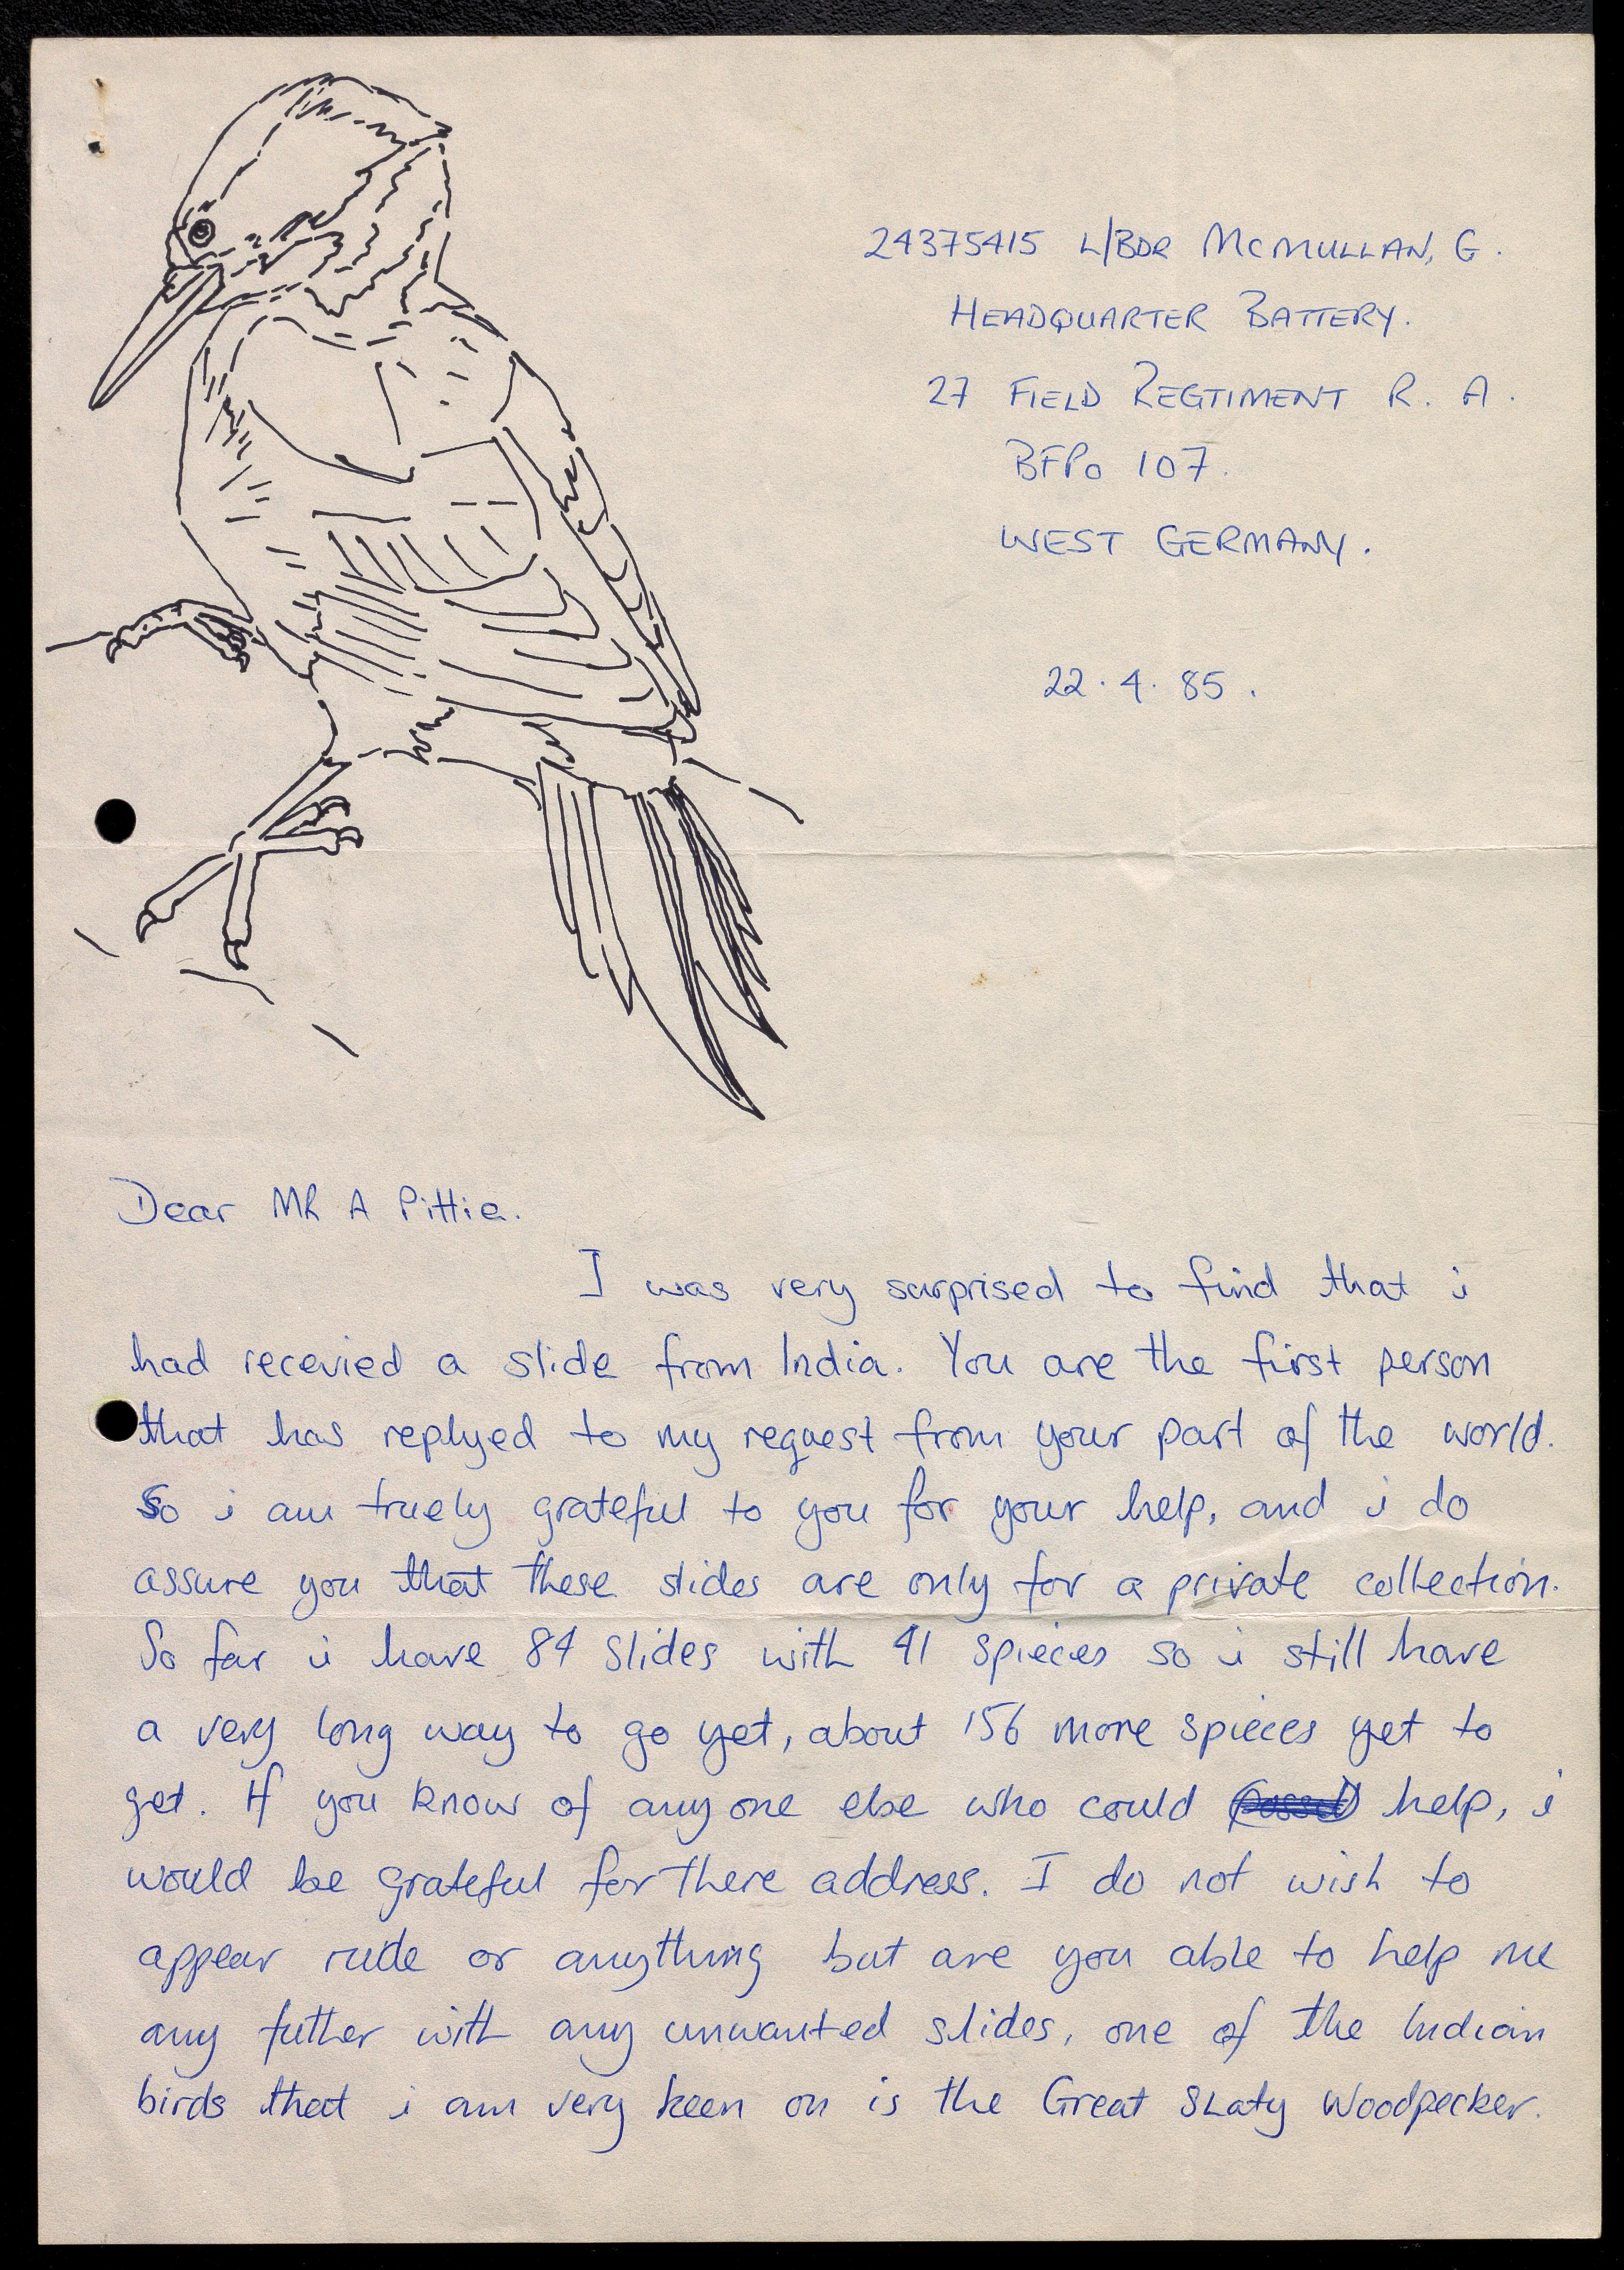 24375415 L/BDR McMULLAN, G.
HEADQUARTER BATTERY.
27 FIELD REGTIMENT R. A.
BFPo 107.
WEST GERMANY.
22.4.85.
Dear MR A Pittie.
I was very surprised to find that i
had recevied a slide from India. You are the first person
that has replyed to my request from your part of the world.
So i am truely grateful to you for your help, and i do
assure you that these slides are only for a private collection.
So far i have 84 slides with 41 spieces so i still have
a very long way to go yet, about 156 more spieces yet to
get. If you know of any one else who could help, i
would be grateful for there address. I do not wish to
appear rude or anything but are you able to help me
any futher with any unwanted slides, one of the Indian
birds that i am very keen on is the Great SLaty Woodpecker.